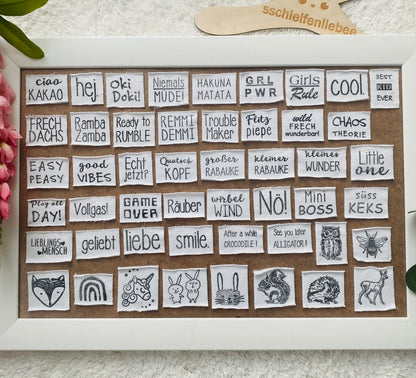 sschleifenliebee
ciao
KAKAO
hej
Oki
Doki!
Niemals
MÜDE!
HAKUNA
MATATA
GRL
PWR
Girls
Rule
cool.
BEST
KID
EVER
FRECH
DACHS
Ramba
Zamba
Ready to
RUMBLE
REMMI
DEMMI
Trouble
Maker
Flitz
piepe
wild
FRECH
wunderbar!
CHAOS
THEORIE
EASY
PEASY
good
VIBES
Echt
jetzt?
Quatsch
KOPF
großer
RABAUKE
kleiner
RABAUKE
kleines
WUNDER
Little
one
Play all
DAY!
Vollgas!
GAME
OVER
Räuber
wirbel
WIND
Nö!
Mini
BOSS
süss
KEKS
LIEBLINGS
MENSCH
geliebt
liebe
smile.
After a while
CROCODILE!
See you later
ALLIGATOR!